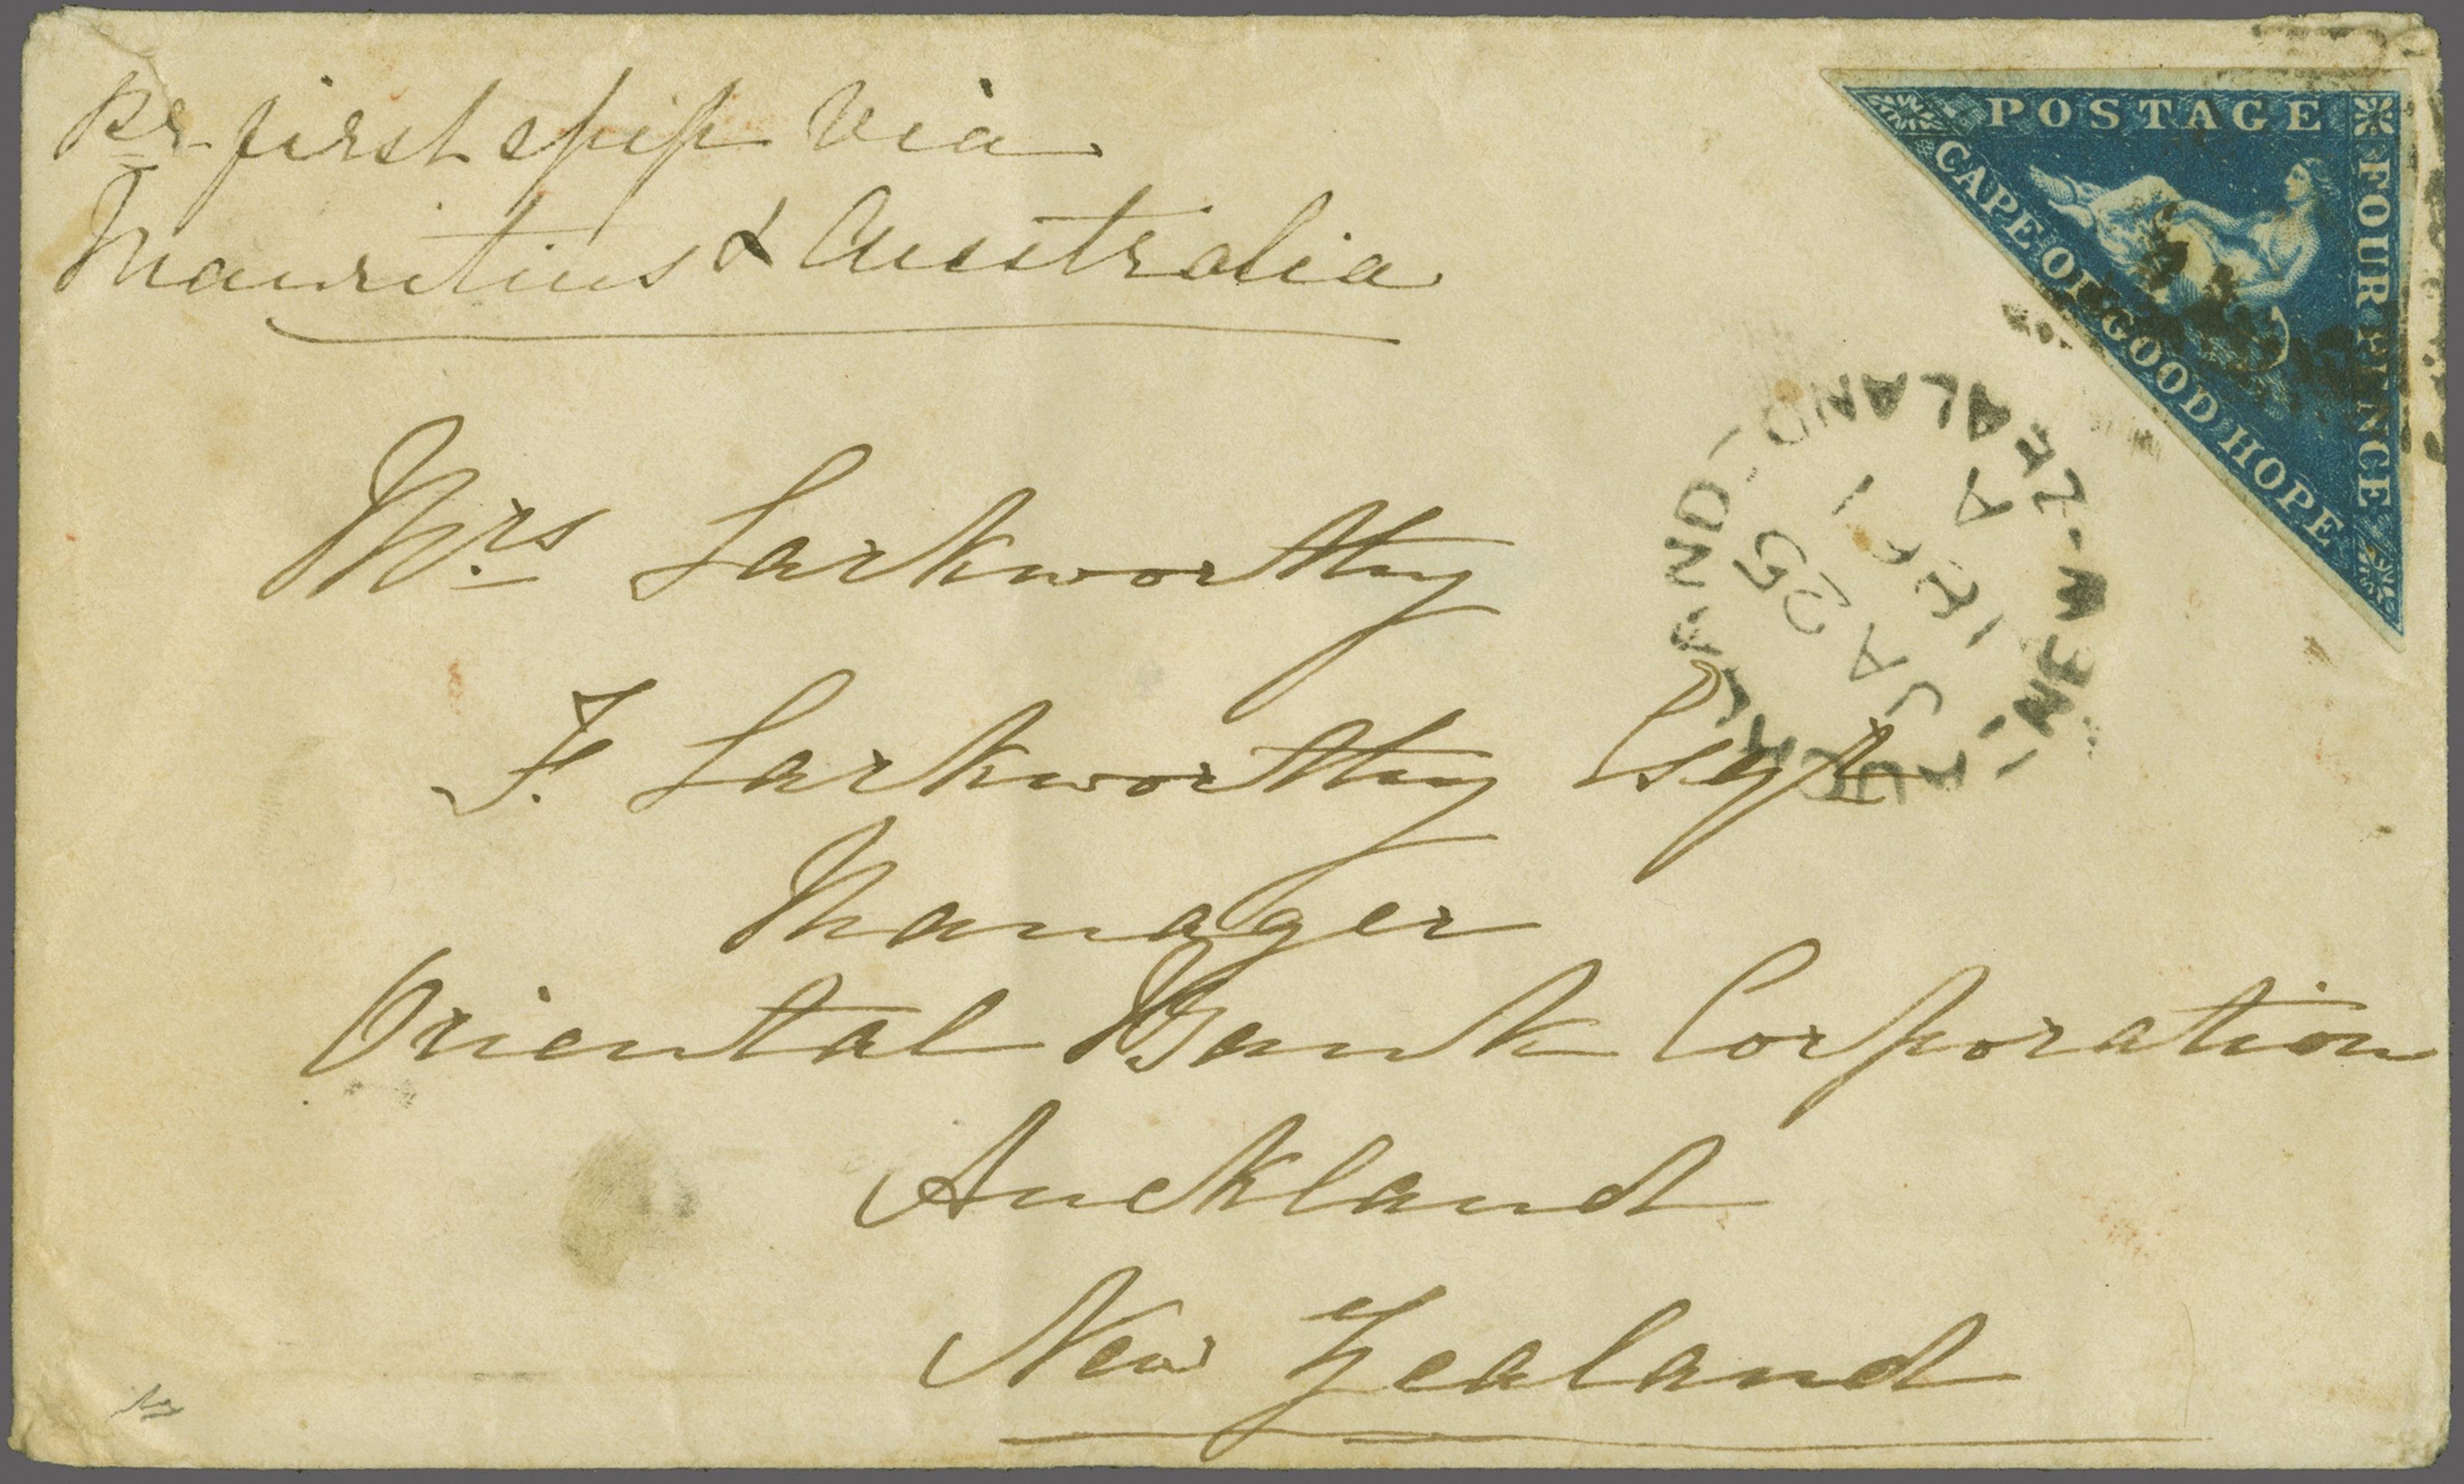 Pr first ship via
Mauritius & Australia
POSTAGE
FOUR PENCE
CAPE OF GOOD HOPE
AUCKLAND
NEW-ZEALAND
A
JA 25
Mrs Larkworthy
F. Larkworthy Esqr
Manager
Oriental Bank Corporation
Auckland
New Zealand